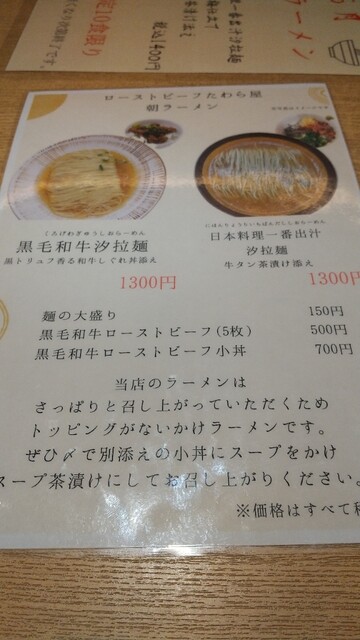 定10食限り
くなり次第終了です。
税込1400円
ラーメン
ローストビーフたわら屋
朝ラーメン
くろげわぎゅうしおらーめん
黒毛和牛汐拉麺
黒トリュフ香る和牛しぐれ丼添え
1300円
にほんりょうりいちばんだししおらーめん
日本料理一番出汁
汐拉麺
牛タン茶漬け添え
1300円
麺の大盛り 150円
黒毛和牛ローストビーフ(5枚) 500円
黒毛和牛ローストビーフ小丼 700円
当店のラーメンは
さっぱりと召し上がっていただくため
トッピングがないかけラーメンです。
ぜひ〆で別添えの小丼にスープをかけ
スープ茶漬けにしてお召し上がりください。
※価格はすべて税